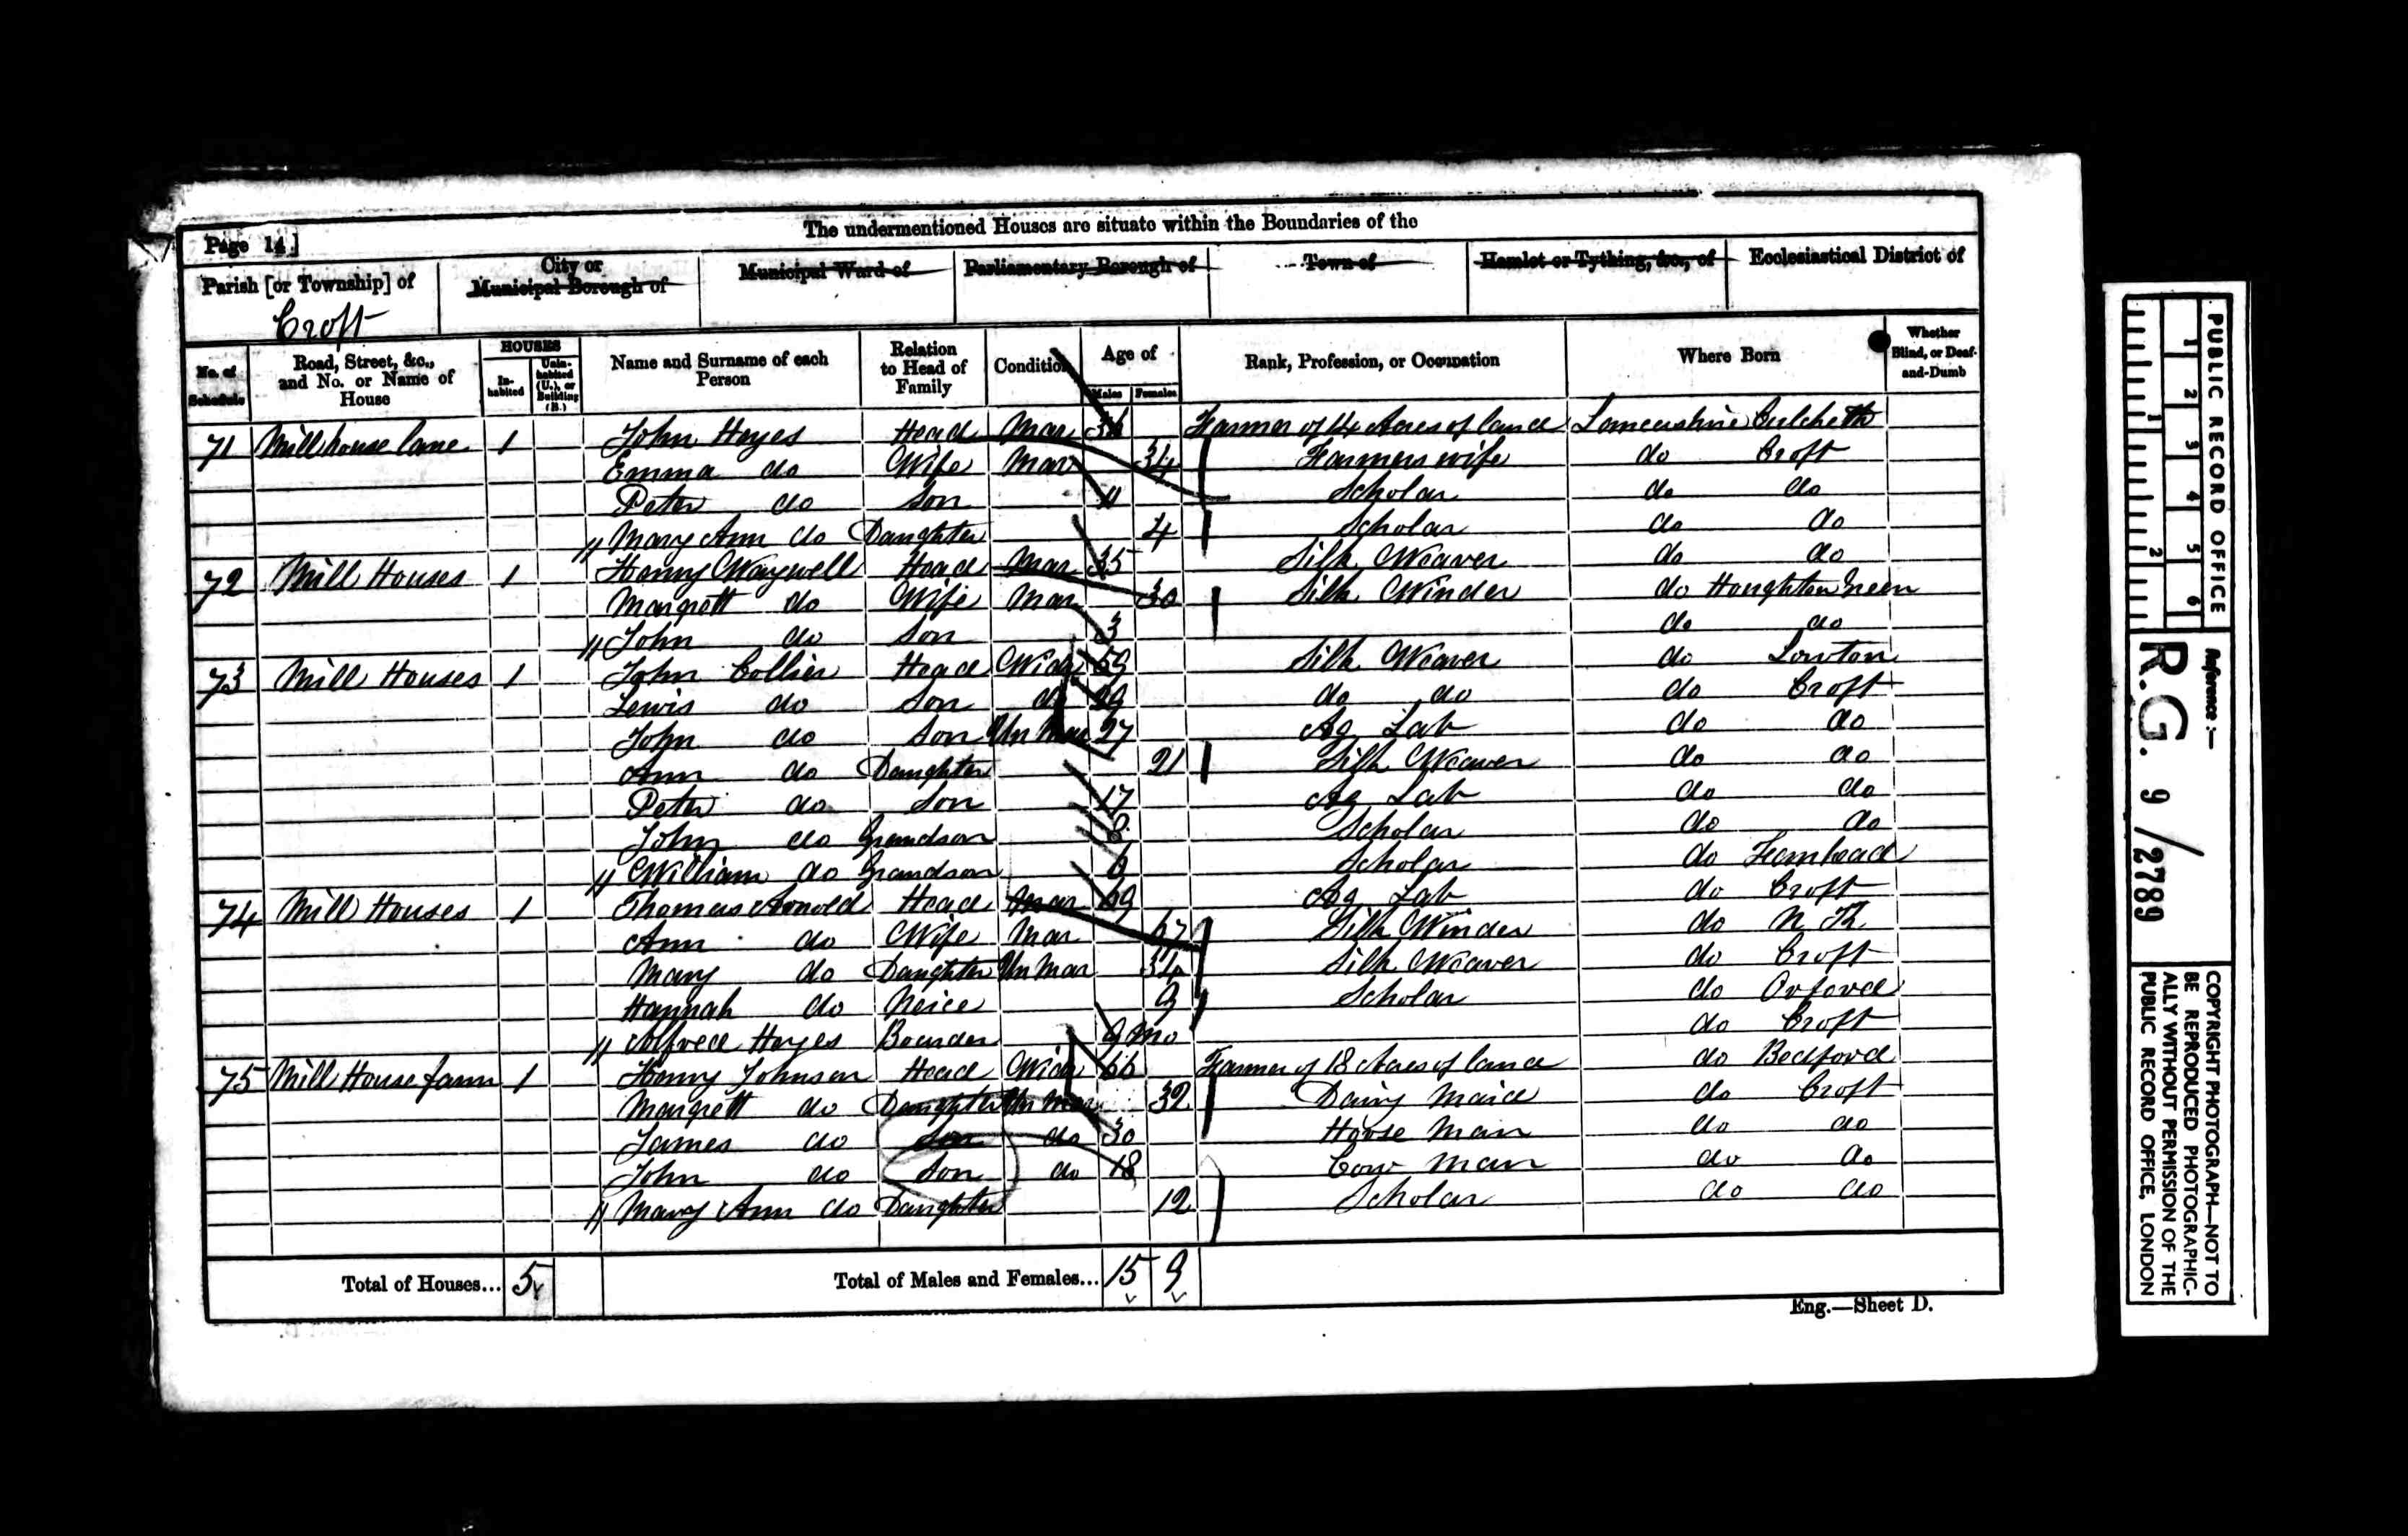 The undermentioned Houses are situate within the Boundaries of the
Page 14]
Parish [or Township] of
Croft
City or
Municipal Borough of
Municipal Ward of
Parliamentary Borough of
Town of
Hamlet or Tything, &c., of
Ecclesiastical District of
No. of Schedule
Road, Street, &c., and No. or Name of House
HOUSES
Inhabited
Uninhabited (U.), or Building (B.)
Name and Surname of each Person
Relation to Head of Family
Condition
Age of
Males
Females
Rank, Profession, or Occupation
Where Born
Whether Blind, or Deaf-and-Dumb
71 Mill house lane 1 John Hayes Head Mar Farmer of 14 Acres of land Lancashire Culcheth
Emma do Wife Mar 34 Farmers wife do Croft
Peter do Son 11 Scholar do do
" Mary Ann do Daughter 4 Scholar do do
72 Mill Houses 1 Henry Waywell Head Mar 35 Silk Weaver do do
Margrett do Wife Mar 30 Silk Winder do Houghton Green
" John do Son 3 do do
73 Mill Houses 1 John Collier Head Widr 59 Silk Weaver do Lowton
Lewis do Son do 29 do do do Croft
John do Son Un Mar 27 Ag Lab do do
Ann do Daughter 21 Silk Weaver do do
Peter do Son 17 Ag Lab do do
John do Grandson 8 Scholar do do
" William do Grandson 6 Scholar do Fearnhead
74 Mill Houses 1 Thomas Arnold Head Mar 69 Ag Lab do Croft
Ann do Wife Mar 67 Silk Winder do N. K.
Mary do Daughter Un Mar 34 Silk Weaver do Croft
Hannah do Neice 9 Scholar do Orford
" Alfred Hayes Boarder 9 mo do Croft
75 Mill House farm 1 Henry Johnson Head Widr 66 Farmer of 18 Acres of land do Bedford
Margrett do Daughter Un Mar 32 Dairy Maid do Croft
James do Son do 30 Horse Man do do
John do Son do 18 Cow Man do do
" Mary Ann do Daughter 12 Scholar do do
Total of Houses... 5
Total of Males and Females... 15 9
Eng.—Sheet D.
PUBLIC RECORD OFFICE
1 2 3 4 5 6
1 2
Reference :—
R.G. 9/2789
COPYRIGHT PHOTOGRAPH—NOT TO
BE REPRODUCED PHOTOGRAPHIC-
ALLY WITHOUT PERMISSION OF THE
PUBLIC RECORD OFFICE, LONDON